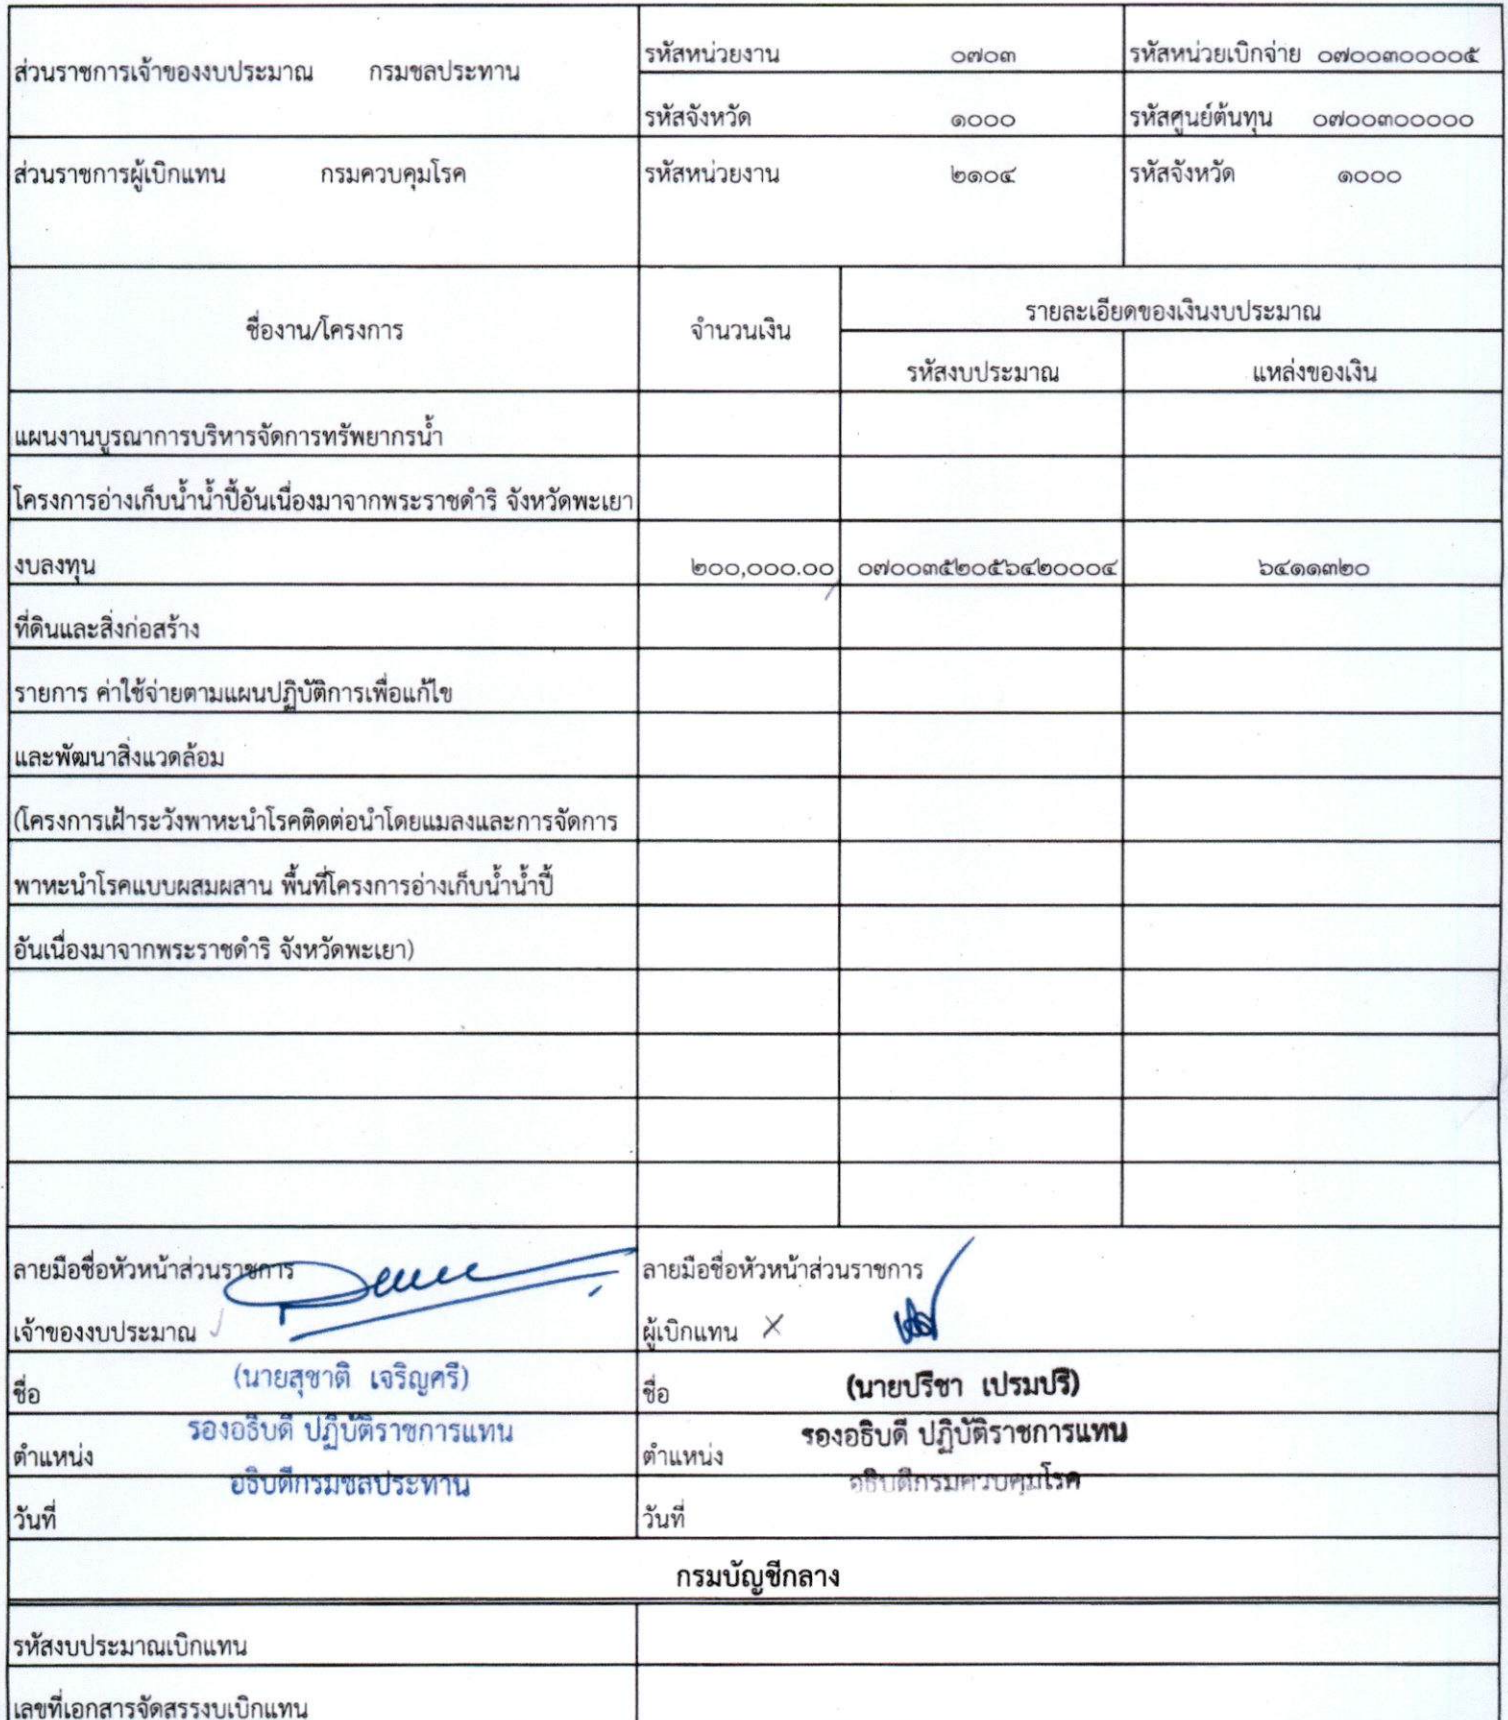 ส่วนราชการเจ้าของงบประมาณ กรมชลประทาน รหัสหน่วยงาน ๐๗๐๓ รหัสหน่วยเบิกจ่าย ๐๗๐๐๓๐๐๐๐๕
รหัสจังหวัด ๑๐๐๐ รหัสศูนย์ต้นทุน ๐๗๐๐๓๐๐๐๐๐
ส่วนราชการผู้เบิกแทน กรมควบคุมโรค รหัสหน่วยงาน ๒๑๐๔ รหัสจังหวัด ๑๐๐๐
ชื่องาน/โครงการ จำนวนเงิน รายละเอียดของเงินงบประมาณ
รหัสงบประมาณ แหล่งของเงิน
แผนงานบูรณาการบริหารจัดการทรัพยากรน้ำ
โครงการอ่างเก็บน้ำน้ำปี้อันเนื่องมาจากพระราชดำริ จังหวัดพะเยา
งบลงทุน ๒๐๐,๐๐๐.๐๐ ๐๗๐๐๓๕๒๐๕๖๔๒๐๐๐๔ ๖๔๑๑๓๒๐
ที่ดินและสิ่งก่อสร้าง
รายการ ค่าใช้จ่ายตามแผนปฏิบัติการเพื่อแก้ไข
และพัฒนาสิ่งแวดล้อม
(โครงการเฝ้าระวังพาหะนำโรคติดต่อนำโดยแมลงและการจัดการ
พาหะนำโรคแบบผสมผสาน พื้นที่โครงการอ่างเก็บน้ำน้ำปี้
อันเนื่องมาจากพระราชดำริ จังหวัดพะเยา)
ลายมือชื่อหัวหน้าส่วนราชการ ลายมือชื่อหัวหน้าส่วนราชการ
เจ้าของงบประมาณ ผู้เบิกแทน
ชื่อ (นายสุชาติ เจริญศรี) ชื่อ (นายปรีชา เปรมปรี)
รองอธิบดี ปฏิบัติราชการแทน รองอธิบดี ปฏิบัติราชการแทน
ตำแหน่ง ตำแหน่ง
อธิบดีกรมชลประทาน อธิบดีกรมควบคุมโรค
วันที่ วันที่
กรมบัญชีกลาง
รหัสงบประมาณเบิกแทน
เลขที่เอกสารจัดสรรงบเบิกแทน